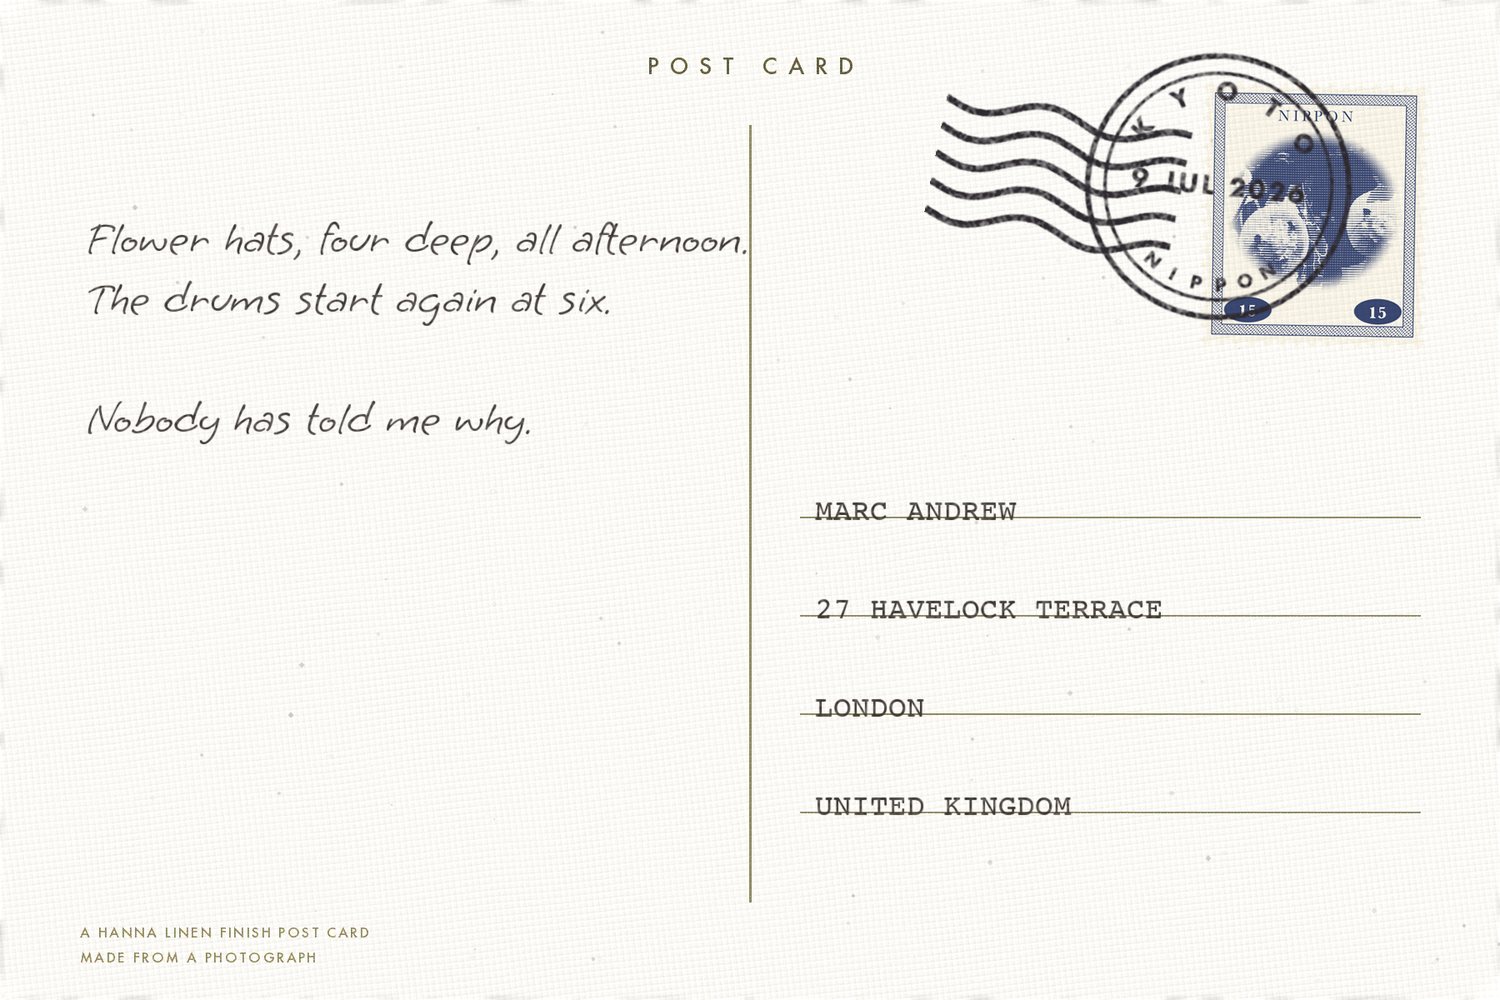 POST CARD
KYOTO
9 JUL 2026
NIPPON
NIPPON
15
15
Flower hats, four deep, all afternoon.
The drums start again at six.
Nobody has told me why.
MARC ANDREW
27 HAVELOCK TERRACE
LONDON
UNITED KINGDOM
A HANNA LINEN FINISH POST CARD
MADE FROM A PHOTOGRAPH